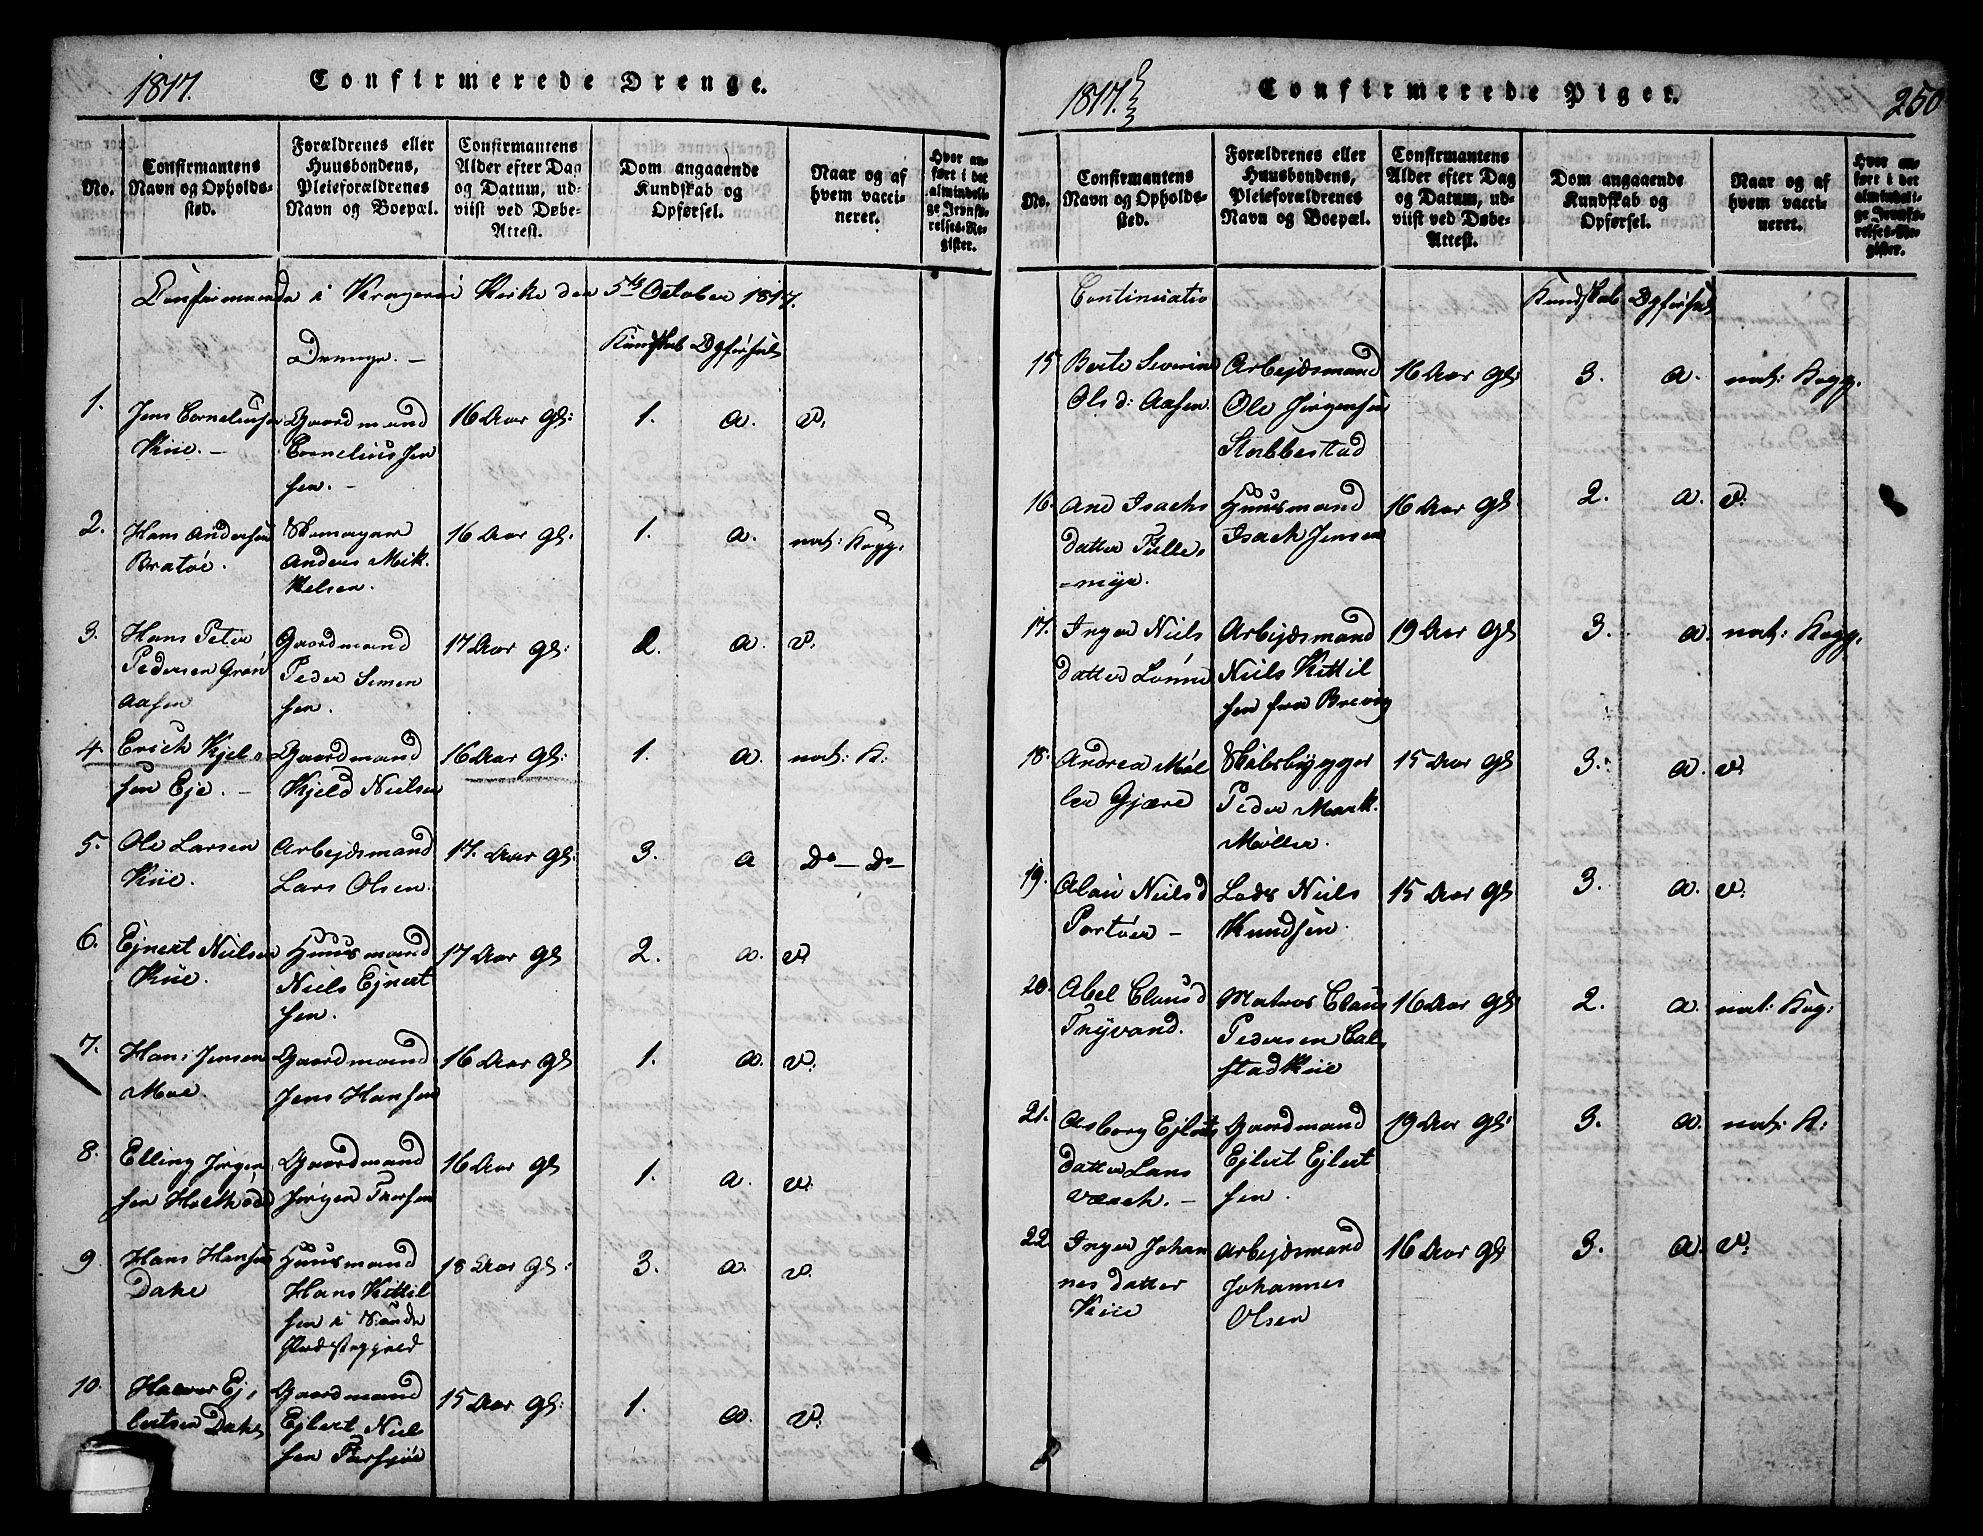 1817.
Confirmerede Drenge.
No.
Confirmantens
Navn og Opholds-
sted.
Forældrenes eller
Huusbondens,
Pleieforældrenes
Navn og Boepæl.
Confirmantens
Alder efter Dag
og Datum, ud-
viist ved Døbe-
Attest.
Dom angaaende
Kundskab og
Opførsel.
Naar og af
hvem vacci-
neret.
Hvor an-
ført i det
almindeli-
ge Jevnfø-
relses-Re-
gister.
Confirmanda i Kragerøe Kirke den 5te October 1817.
Drenge. -
Kundskab Opførsel
1.
Jens Corneliussen
Kiie. -
Gaardmand
Cornelius Jen
sen. -
16 Aar gl:
1.
a.
v.
2.
Hans Andersen
Bratøe.
Skomager
Anders Mik-
kelsen.
16 Aar gl:
1.
a.
nat: Kopp:
3.
Hans Peter
Pedersen Grøn
aasen
Gaardmand
Peder Simen
sen.
17 Aar gl:
2.
a.
v.
4.
Erich Kjel-
sen Eje. -
Gaardmand
Kjeld Nielsen
16 Aar gl:
1.
a.
nat: K:
5.
Ole Larsen
Kiie.
Arbejdsmand
Lars Olsen.
17. Aar gl:
3.
a
Do - Do -
6.
Ejnert Nielsen
Kiie.
Huusmand
Niels Ejnert
sen.
17 Aar gl
2.
a.
v.
7.
Hans Jensen
Moe
Gaardmand
Jens Hansen
16 Aar gl
1.
a.
v.
8.
Elling Jørgen
sen
Gaardmand
Jørgen Thorsen
16 Aar gl
1.
a.
v.
9.
Hans Hansen
Dake
Huusmand
Hans Kittil
sen i
Præstegjeld
18 Aar gl:
3.
a.
v.
10.
Halvor Ej-
lertsen Dake
Gaardmand
Ejlert Niel
sen
15 Aar gl:
1.
a.
v.
1817.
Confirmerede Piger.
250
No.
Confirmantens
Navn og Opholds-
sted.
Forældrenes eller
Huusbondens,
Pleieforældrenes
Navn og Boepæl.
Confirmantens
Alder efter Dag
og Datum, ud-
viist ved Døbe-
Attest.
Dom angaaende
Kundskab og
Opførsel.
Naar og af
hvem vacci-
neret.
Hvor an-
ført i det
almindeli-
ge Jevnfø-
relses-Re-
gister.
Continuatio
Kundskab Opførsel
15
Berte Severine
Ols d: Aasen.
Arbejdsmand
Ole Jørgensen
Stabbestad
16 Aar gl:
3.
a.
nat: Kopp.
16.
Ane Isachs
datter Tulle-
-myr.
Huusmand
Isach Jensen
16 Aar gl.
2.
a.
v.
17.
Inger Niels
datter Lønne
Arbejdsmand
Niels Kittil
sen fra Brevig
19 Aar gl
3.
a.
nat: Kopp.
18.
Andrea Møl
ler Gjære
Skibsbygger
Peder Mark.
Møller.
15 Aar gl
3.
a.
v.
19.
Niels d
Portøer -
Lods Niels
Knudsen.
15 Aar gl
3.
a.
v.
20.
Abel Claus d
Thyvand.
Matros Claus
Pedersen Cal-
stad Kiie
16 Aar gl
2.
a.
nat: Kop:
21.
Asborg Ejlerts
datter Lans
værch. -
Gaardmand
Ejlert Ejlert
sen.
19 Aar gl:
3.
a.
nat: K:
22.
Inger Johan
nes datter
Kiie
Arbejdsmand
Johannes
Olsen
16 Aar gl
3.
a.
v.